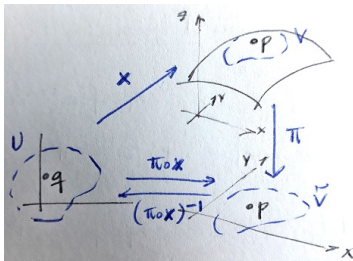 z
p V
x
y
x
π
U
q
π∘x
(π∘x)⁻¹
y
p Ṽ
x